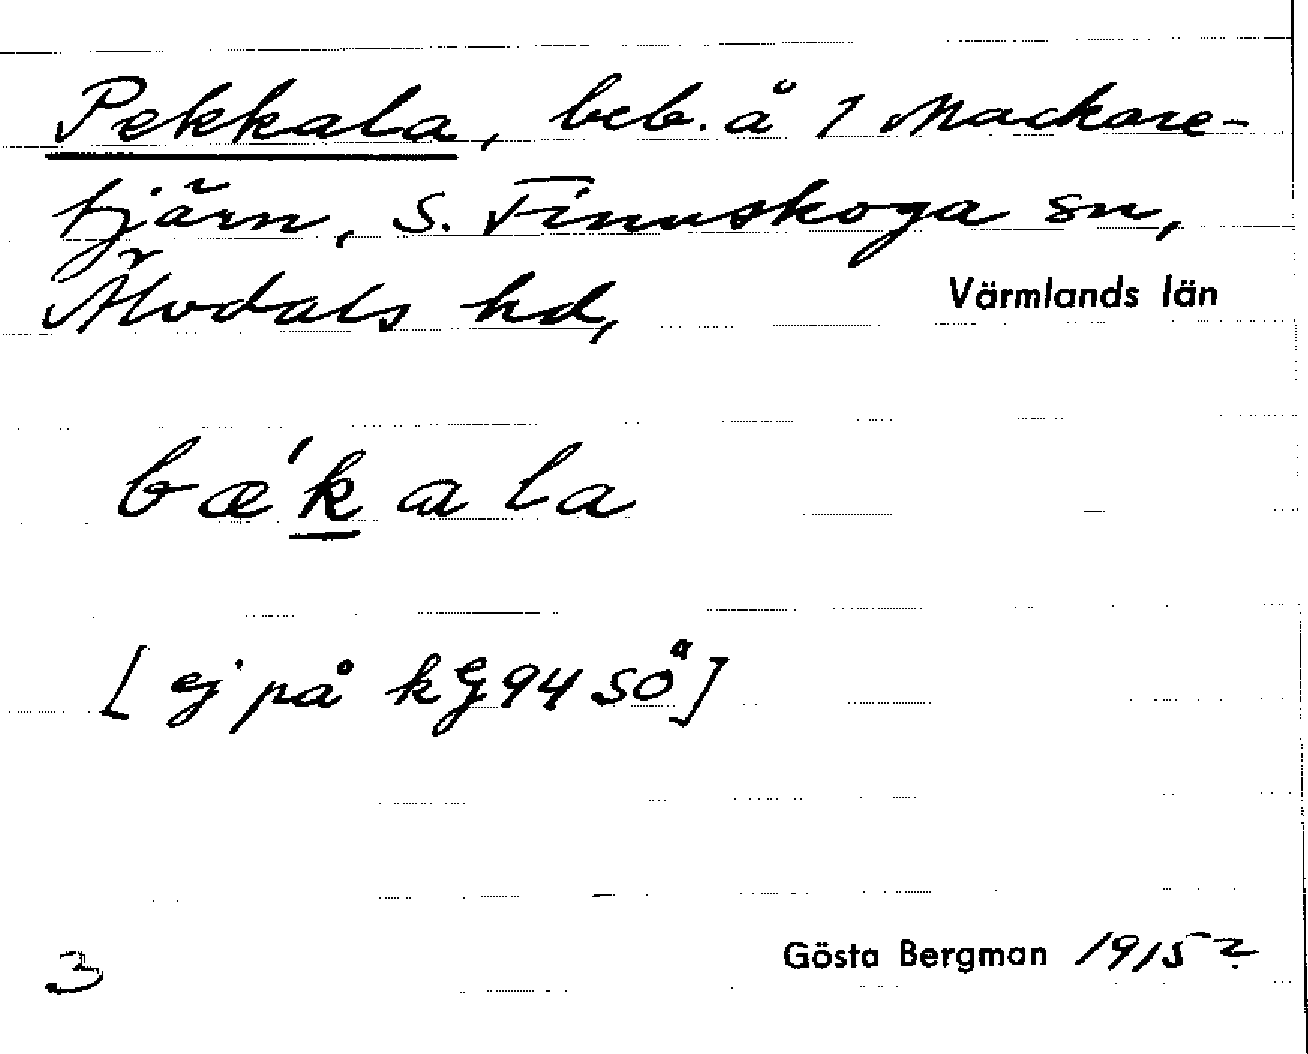 Pekkala, beb. å 1 Mackare-
tjärn, S. Finnskoga sn,
Älvdals hd, Värmlands län
bæ'kala
[ej på kg 94 SÖ]
3 Gösta Bergman 1915?